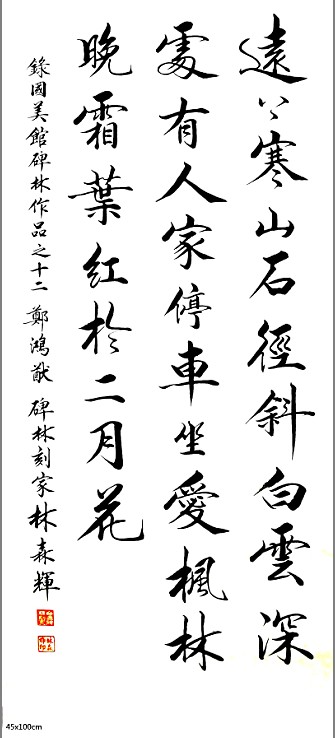 遠上寒山石徑斜白雲深
處有人家停車坐愛楓林
晚霜葉紅於二月花
錄國美館碑林作品之十二 鄭鴻猷 碑林刻家林森輝
45x100cm